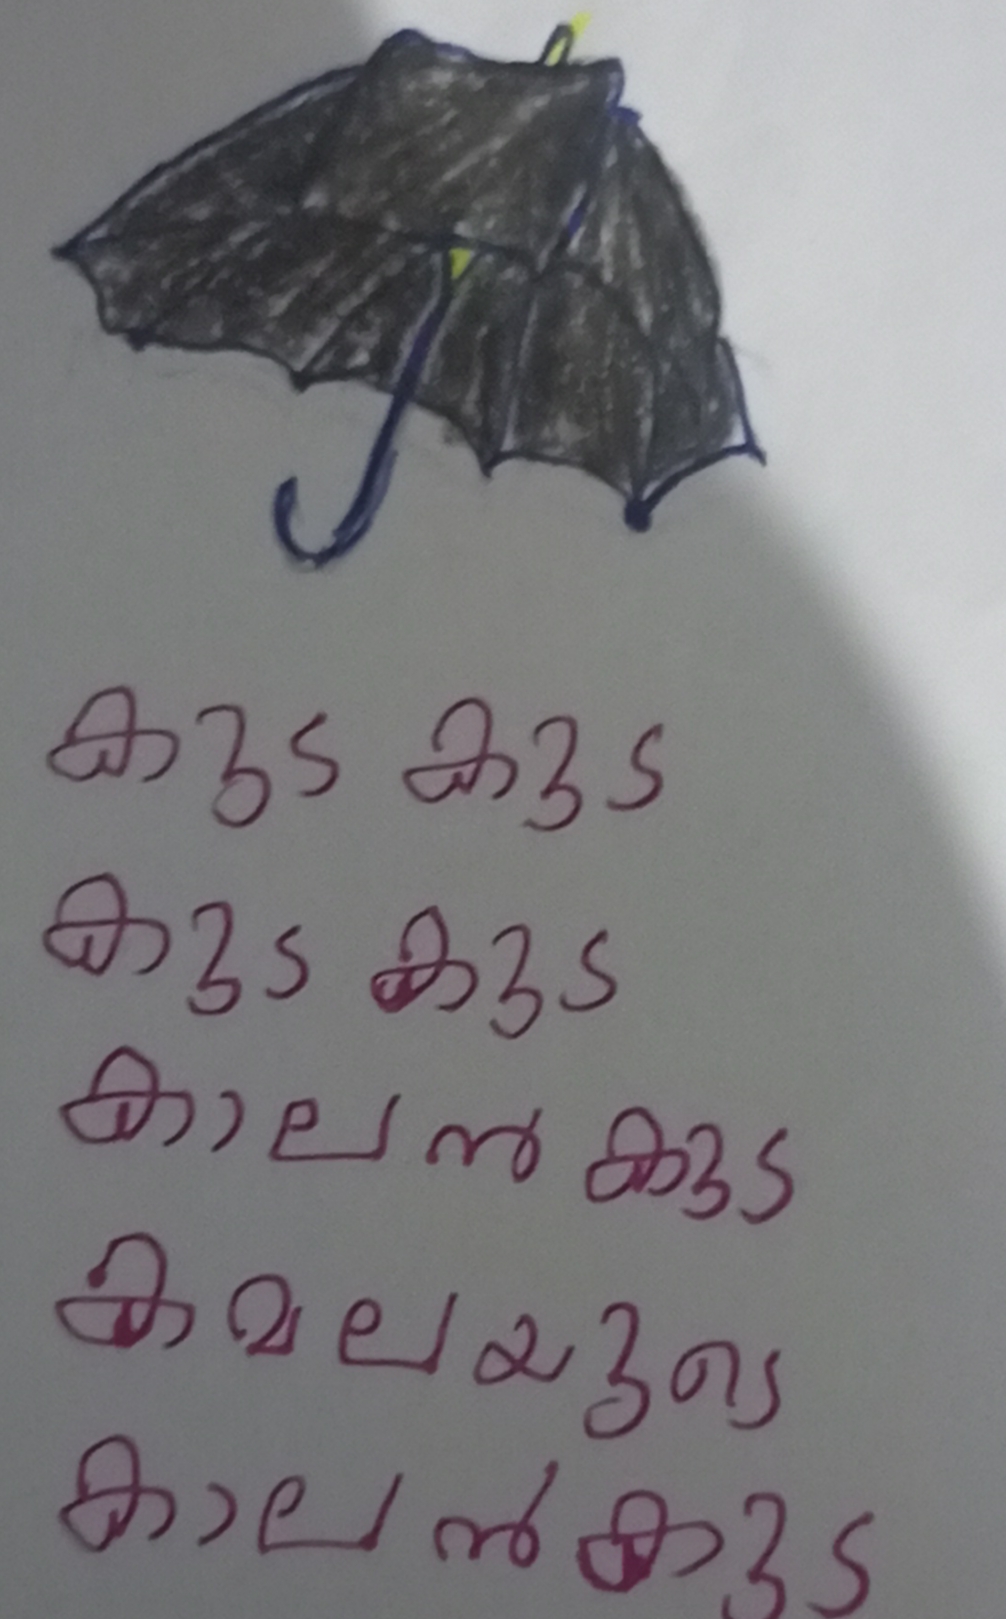 കുട കുട
കുട കുട
കാലൻ കുട
കമലയുടെ
കാലൻ കുട